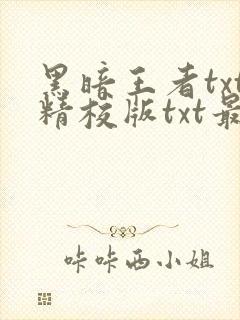 黑暗王者txt
精校版txt最
咔咔西小姐